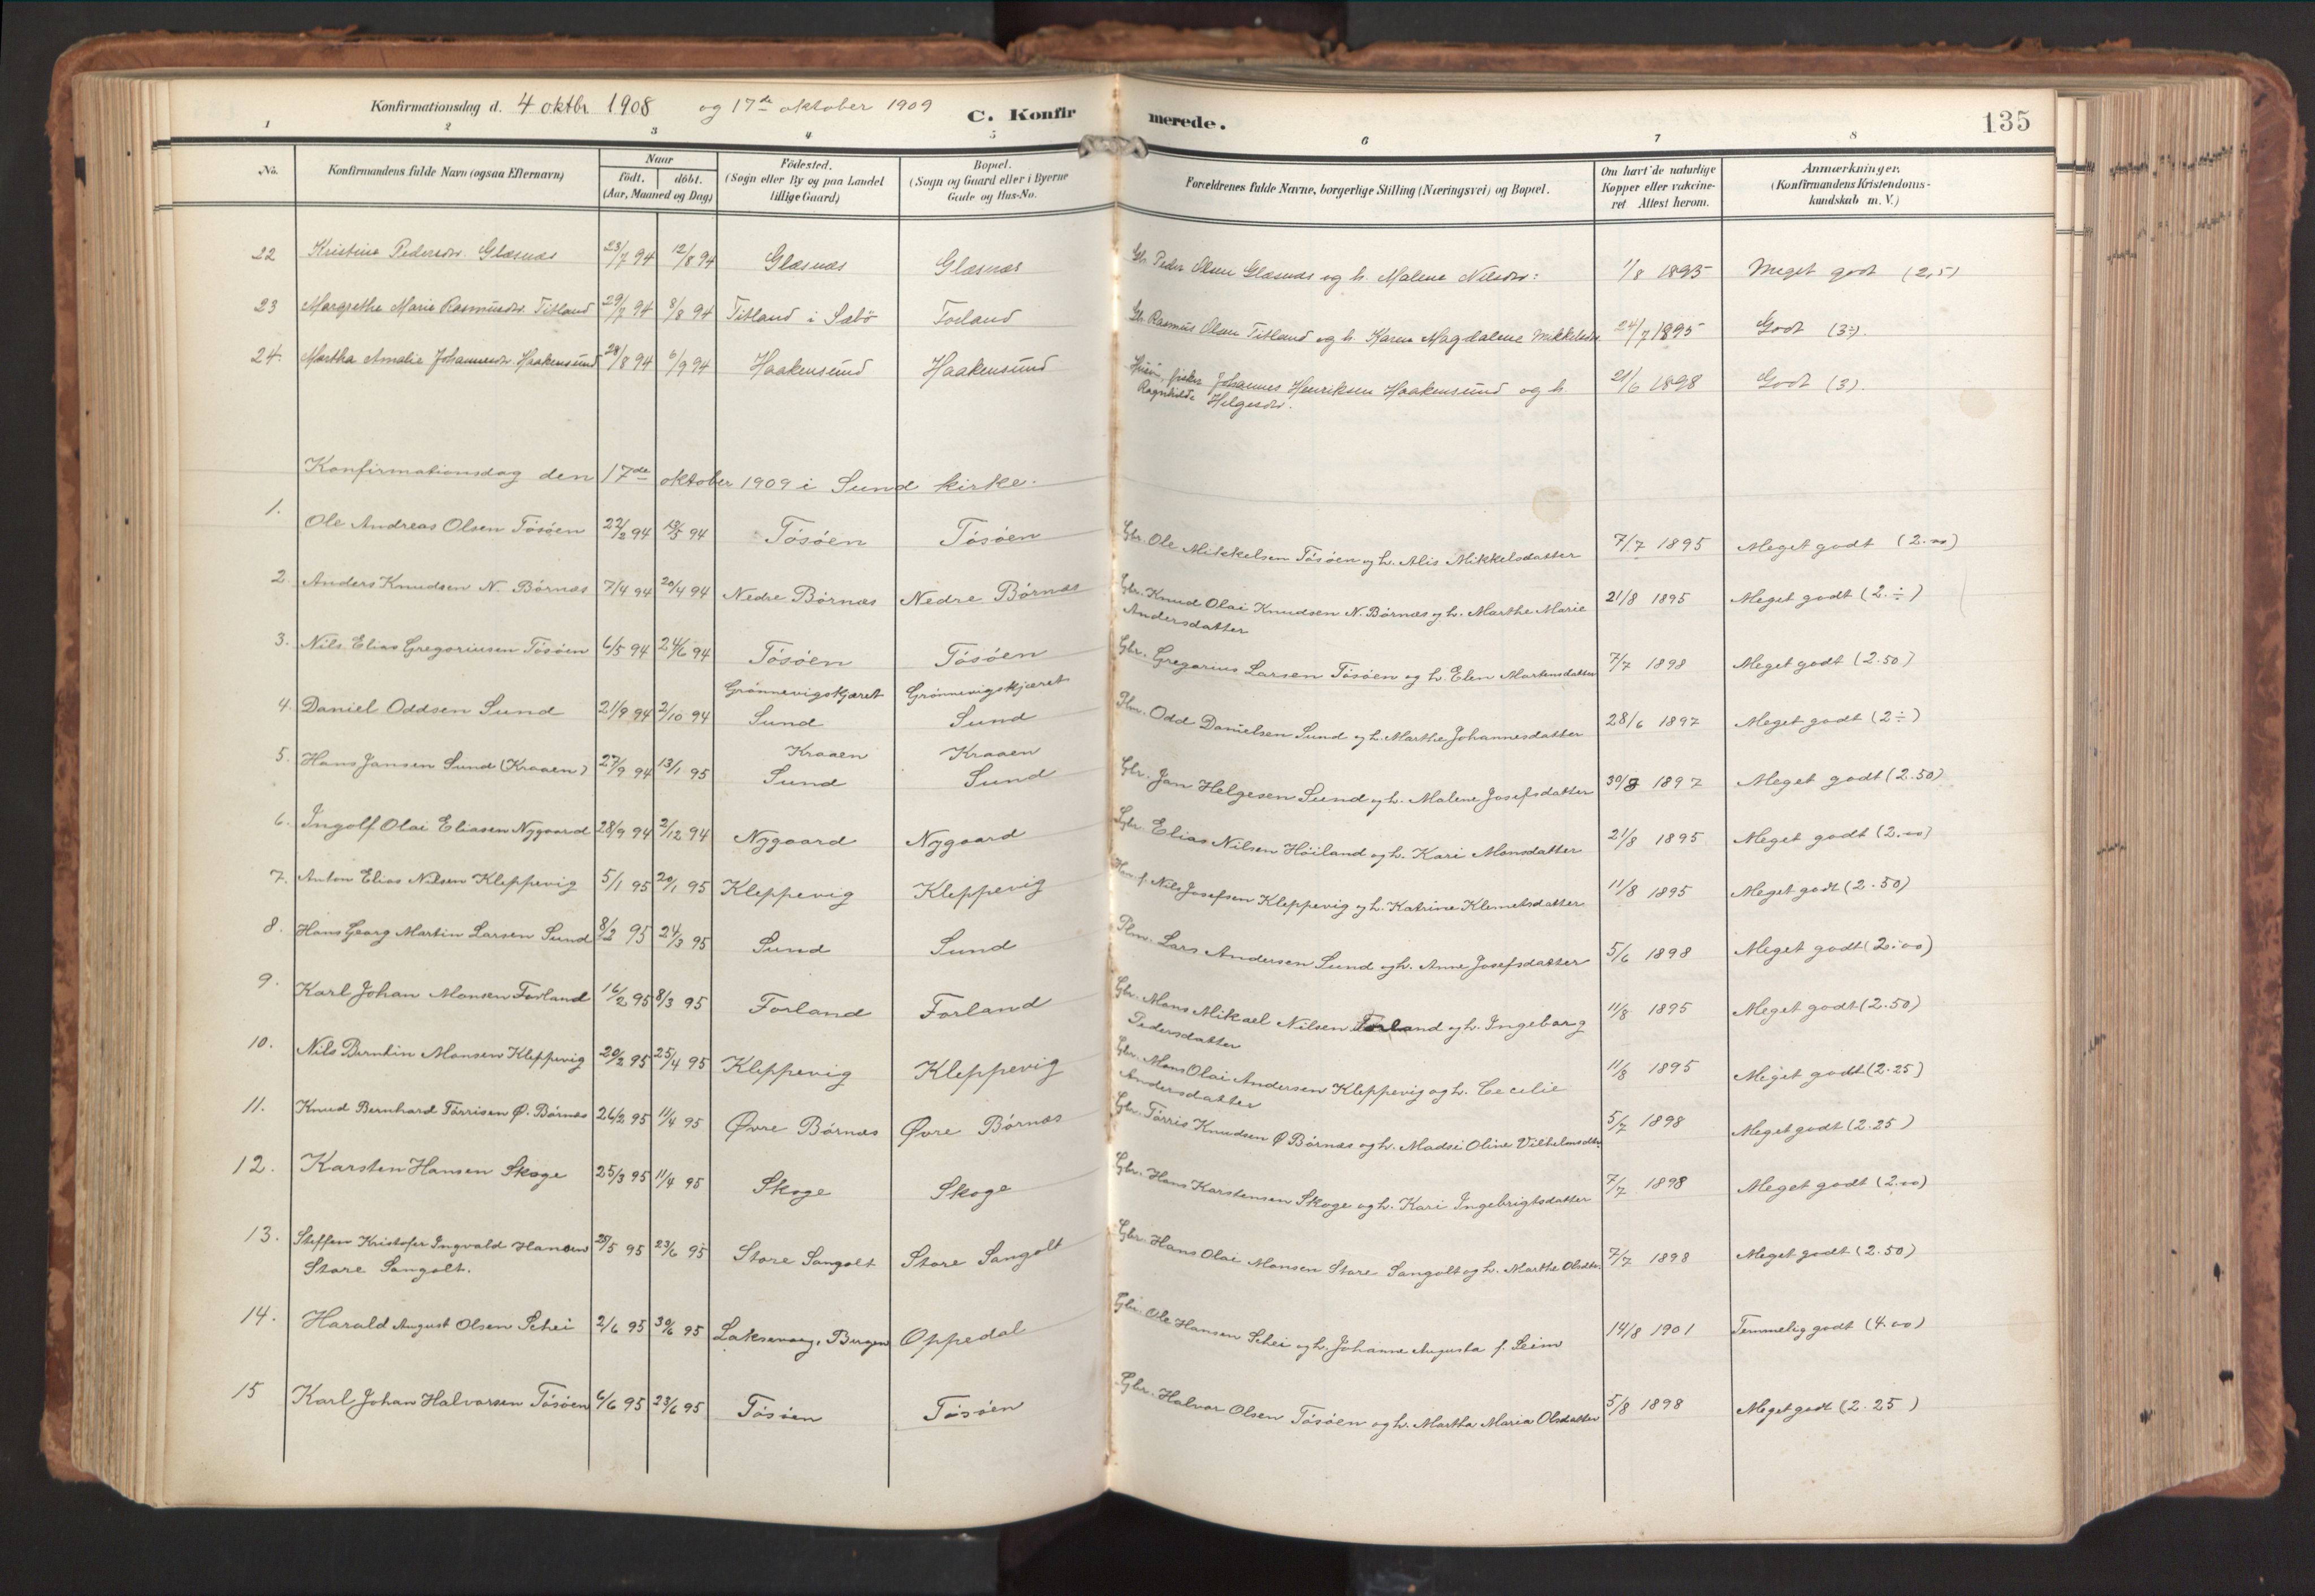 Konfirmationsdag d. 4 oktbr 1908 og 17de oktober 1909
C. Konfirmerede.
135
1 2 3 4 5 6 7 8
No. Konfirmandens fulde Navn (ogsaa Efternavn) Naar født. døbt. (Aar, Maaned og Dag) Fødested. (Sogn eller By og paa Landet tillige Gaard) Bopæl. (Sogn og Gaard eller i Byerne Gade og Hus-No. Forældrenes fulde Navne, borgerlige Stilling (Næringsvei) og Bopæl. Om havt de naturlige Kopper eller vakcineret Attest herom. Anmærkninger. (Konfirmandens Kristendomskundskab m. V.)
22 Kristine Pedersdtr. Glæsnæs 23/7 94 12/8 94 Glæsnæs Glæsnæs Gbr. Peder Olsen Glæsnæs og h. Malene Nilsdtr: 1/8 1895 Meget godt (2,5)
23 Margrethe Marie Rasmusdtr. Titland 29/7 94 8/8 94 Titland i Sæbø Forland Gbr. Rasmus Olsen Titland og h. Karen Magdalene Mikkelsdtr. 24/7 1895 Godt (3÷).
24. Martha Amalie Johannesdtr. Haakensund 28/8 94 6/9 94 Haakensund Haakensund fisker Johannes Henriksen Haakensund og h.
Ragnhilde Helgesdtr. 21/6 1898 Godt (3).
Konfirmationsdag den 17de oktober 1909 i Sund kirke.
1. Ole Andreas Olsen Tøsøen 22/2 94 94 Tøsøen Tøsøen Gbr. Ole Mikkelsen Tøsøen og h. Alis Mikkelsdatter 7/7 1895 Meget godt (2.00)
2. Anders Knudsen N. Børnæs 7/4 94 20/4 94 Nedre Børnæs Nedre Børnæs Gbr. Knud Olai Knudsen N. Børnæs og h. Marthe Marie
Andersdatter 21/8 1895 Meget godt (2.÷)
3. Nils Elias Gregoriusen Tøsøen 6/5 94 24/6 94 Tøsøen Tøsøen Gbr. Gregorius Larsen Tøsøen og h. Elen Martensdatter 7/7 1898 Meget godt (2.50)
Grønnevigskjæret Grønnevigskjæret
4. Daniel Oddsen Sund 21/9 94 2/10 94 Sund Sund Plm. Odd Danielsen Sund og h. Marthe Johannesdatter 28/6 1897 Meget godt (2÷)
Kraaen Kraaen
5. Hans Jansen Sund (Kraaen) 27/9 94 13/1 95 Sund Sund Gbr. Jan Helgesen Sund og h. Malene Josefsdatter 30/8 1897 Meget godt (2.50)
6. Ingolf Olai Eliasen Nygaard 28/9 94 2/12 94 Nygaard Nygaard Gbr. Elias Nilsen Høiland og h. Kari Monsdatter 21/8 1895 Meget godt (2.00)
7. Anton Elias Nilsen Kleppevig 5/1 95 20/1 95 Kleppevig Kleppevig Nils Josefsen Kleppevig og h. Katrine Klemetsdatter 11/8 1895 Meget godt (2.50)
8. Hans Georg Martin Larsen Sund 8/2 95 24/3 95 Sund Sund Plm. Lars Andersen Sund og h. Anne Josefsdatter 5/6 1898 Meget godt (2.00)
9. Karl Johan Monsen Forland 16/2 95 8/3 95 Forland Forland Gbr. Mons Mikael Nilsen Forland og h. Ingeborg
Pedersdatter 11/8 1895 Meget godt (2.50)
10. Nils Berntin Monsen Kleppevig 20/2 95 25/4 95 Kleppevig Kleppevig Gbr. Mons Olai Andersen Kleppevig og h. Cecilie
Andersdatter 11/8 1895 Meget godt (2.25)
11. Knud Bernhard Tørrisen Ø. Børnæs 26/2 95 11/4 95 Øvre Børnæs Øvre Børnæs Gbr. Tørris Knudsen Ø Børnæs og h. Madsi Oline Vilhelmsdtr. 5/7 1898 Meget godt (2.25)
12. Karsten Hansen Skoge 25/3 95 11/4 95 Skoge Skoge Gbr. Hans Karstensen Skoge og h. Kari Ingebrigtsdatter 7/7 1898 Meget godt (2.00)
13. Steffen Kristofer Ingvald Hansen
Store Sangolt. 25/5 95 23/6 95 Store Sangolt Store Sangolt Gbr. Hans Olai Monsen Store Sangolt og h. Marthe Olsdtr. 7/7 1898 Meget godt (2.50)
14. Harald August Olsen Schei 2/6 95 30/6 95 Laksevaag, Bergen Oppedal Gbr. Ole Hansen Schei og h. Johanne Augusta f. Leim 14/8 1901 Temmelig godt (4.00)
15 Karl Johan Halvorsen Tøsøen 6/6 95 23/6 95 Tøsøen Tøsøen Gbr. Halvor Olsen Tøsøen og h. Martha Maria Olsdatter 5/8 1898 Meget godt (2.25)